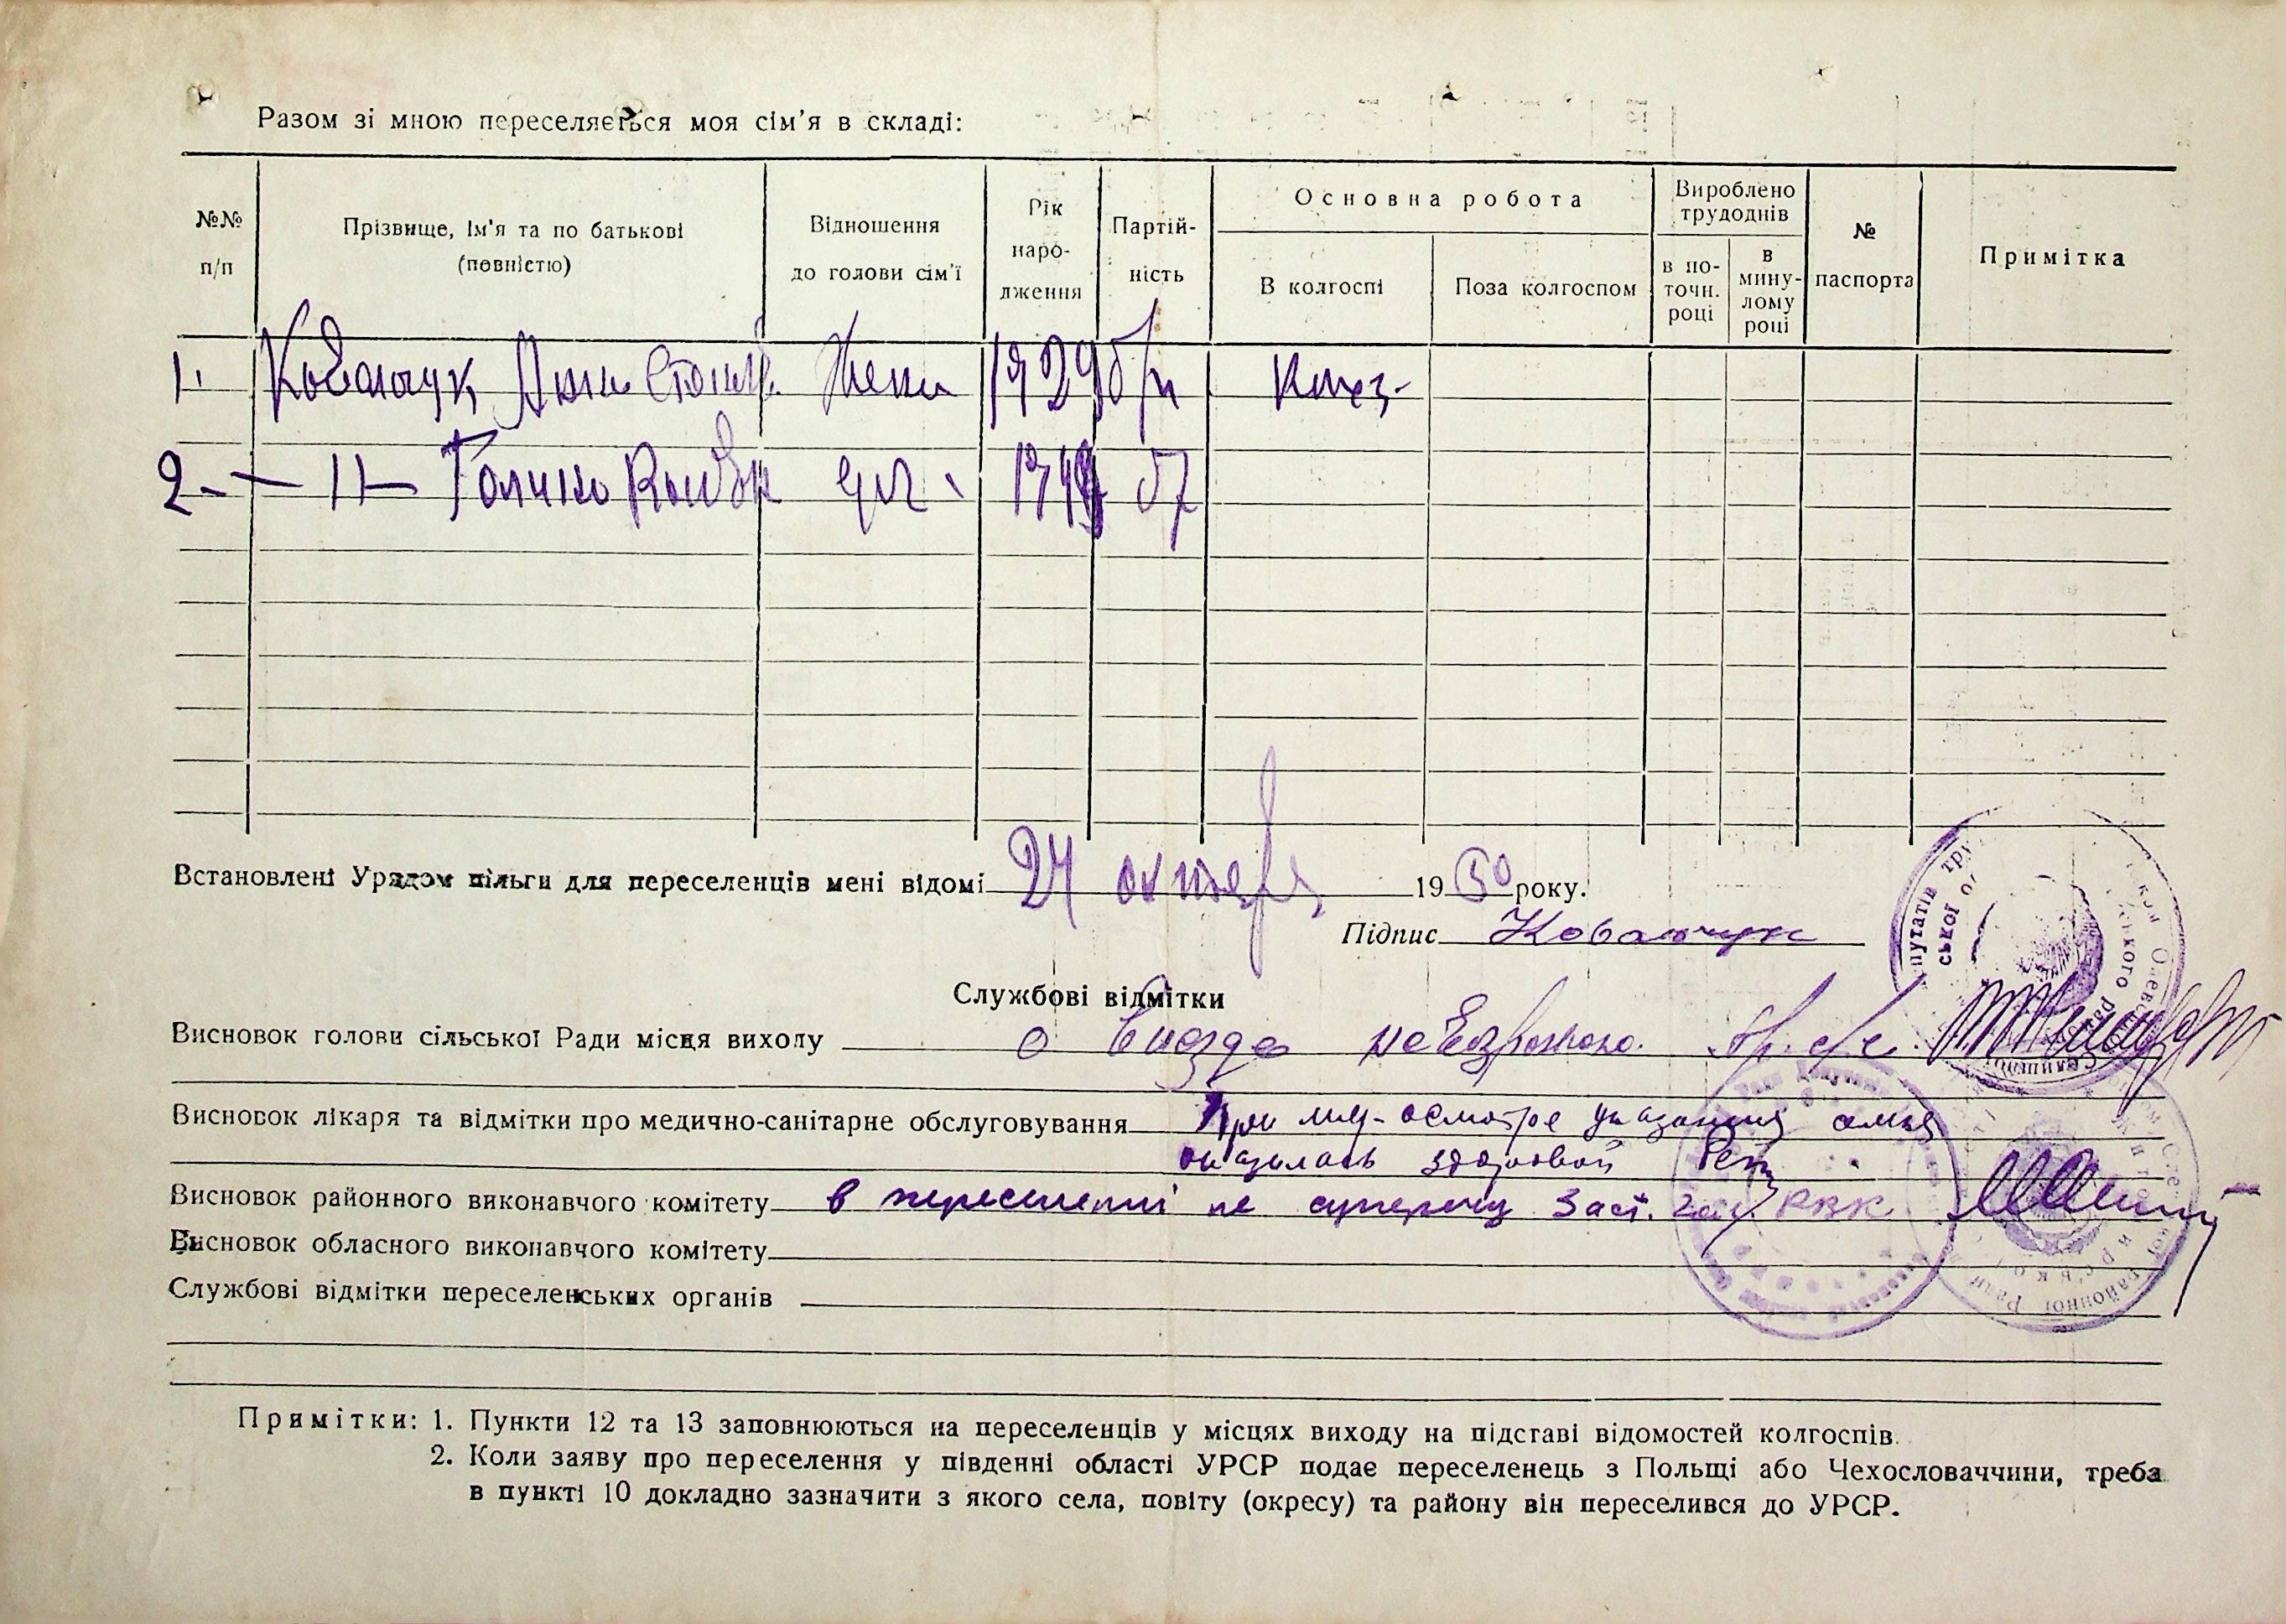 Разом зі мною переселяється моя сім'я в складі:
№№ п/п
Прізвище, ім'я та по батькові (повністю)
Відношення до голови сім'ї
Рік народження
Партійність
Основна робота
В колгоспі
Поза колгоспом
Вироблено трудоднів
в поточн. році
в минулому році
№ паспорта
Примітка
1. Ковальчук жена 1929 б/п
2. — 11 — Галина 194 б/
Встановлені Урядом пільги для переселенців мені відомі 24 октября 1950 року.
Підпис Ковальчук
Службові відмітки
Висновок голови сільської Ради місця виходу о виезде
Висновок лікаря та відмітки про медично-санітарне обслуговування При мед-осмотре указанная семья
оказалась здоровой
Висновок районного виконавчого комітету в переселенні не Заст. РВК
Висновок обласного виконавчого комітету
Службові відмітки переселенських органів
Примітки: 1. Пункти 12 та 13 заповнюються на переселенців у місцях виходу на підставі відомостей колгоспів.
2. Коли заяву про переселення у південні області УРСР подає переселенець з Польщі або Чехословаччини, треба
в пункті 10 докладно зазначити з якого села, повіту (окресу) та району він переселився до УРСР.